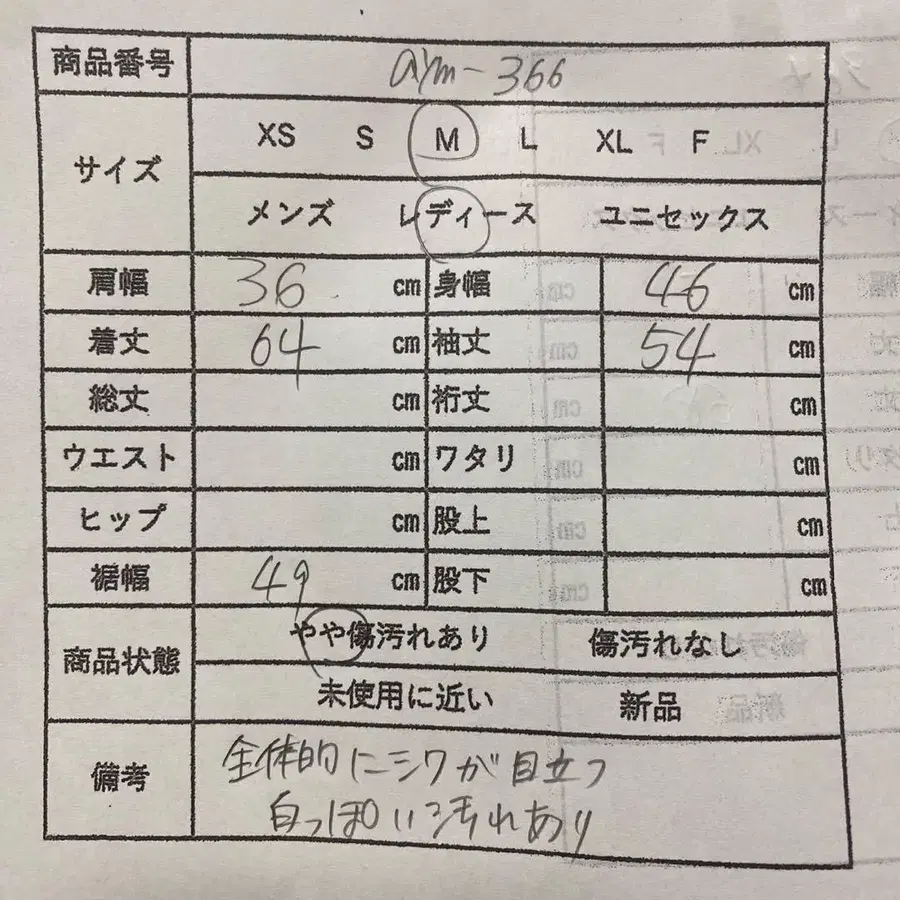 商品番号 aym-366
サイズ XS S M L XL F
メンズ レディース ユニセックス
肩幅 36 cm 身幅 46 cm
着丈 64 cm 袖丈 54 cm
総丈 cm 裄丈 cm
ウエスト cm ワタリ cm
ヒップ cm 股上 cm
裾幅 49 cm 股下 cm
商品状態 やや傷汚れあり 傷汚れなし
未使用に近い 新品
備考 全体的にシワが目立つ
白っぽい汚れあり